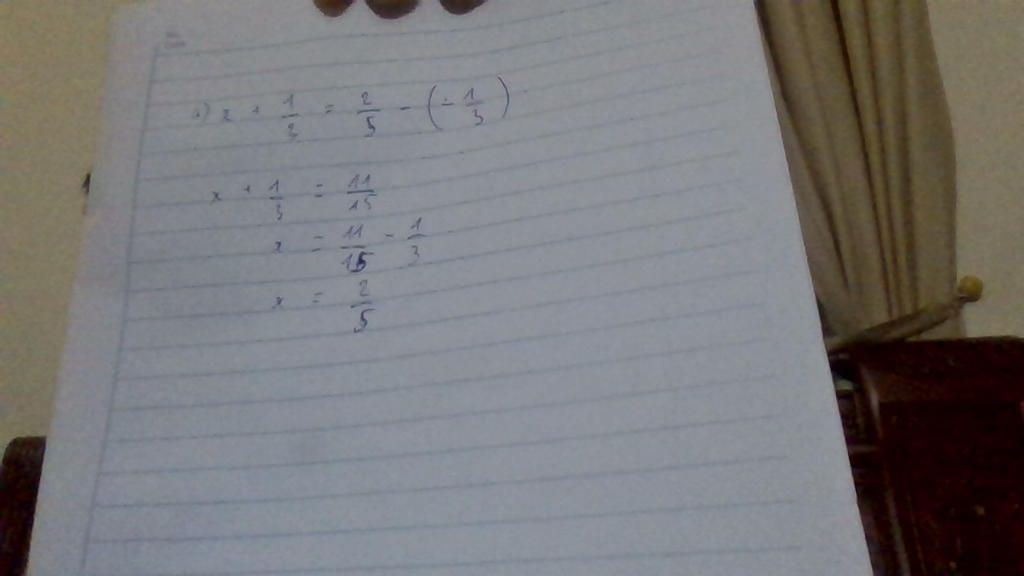 a) x + 1/3 = 2/5 - (- 1/3)
x + 1/3 = 11/15
x = 11/15 - 1/3
x = 2/5